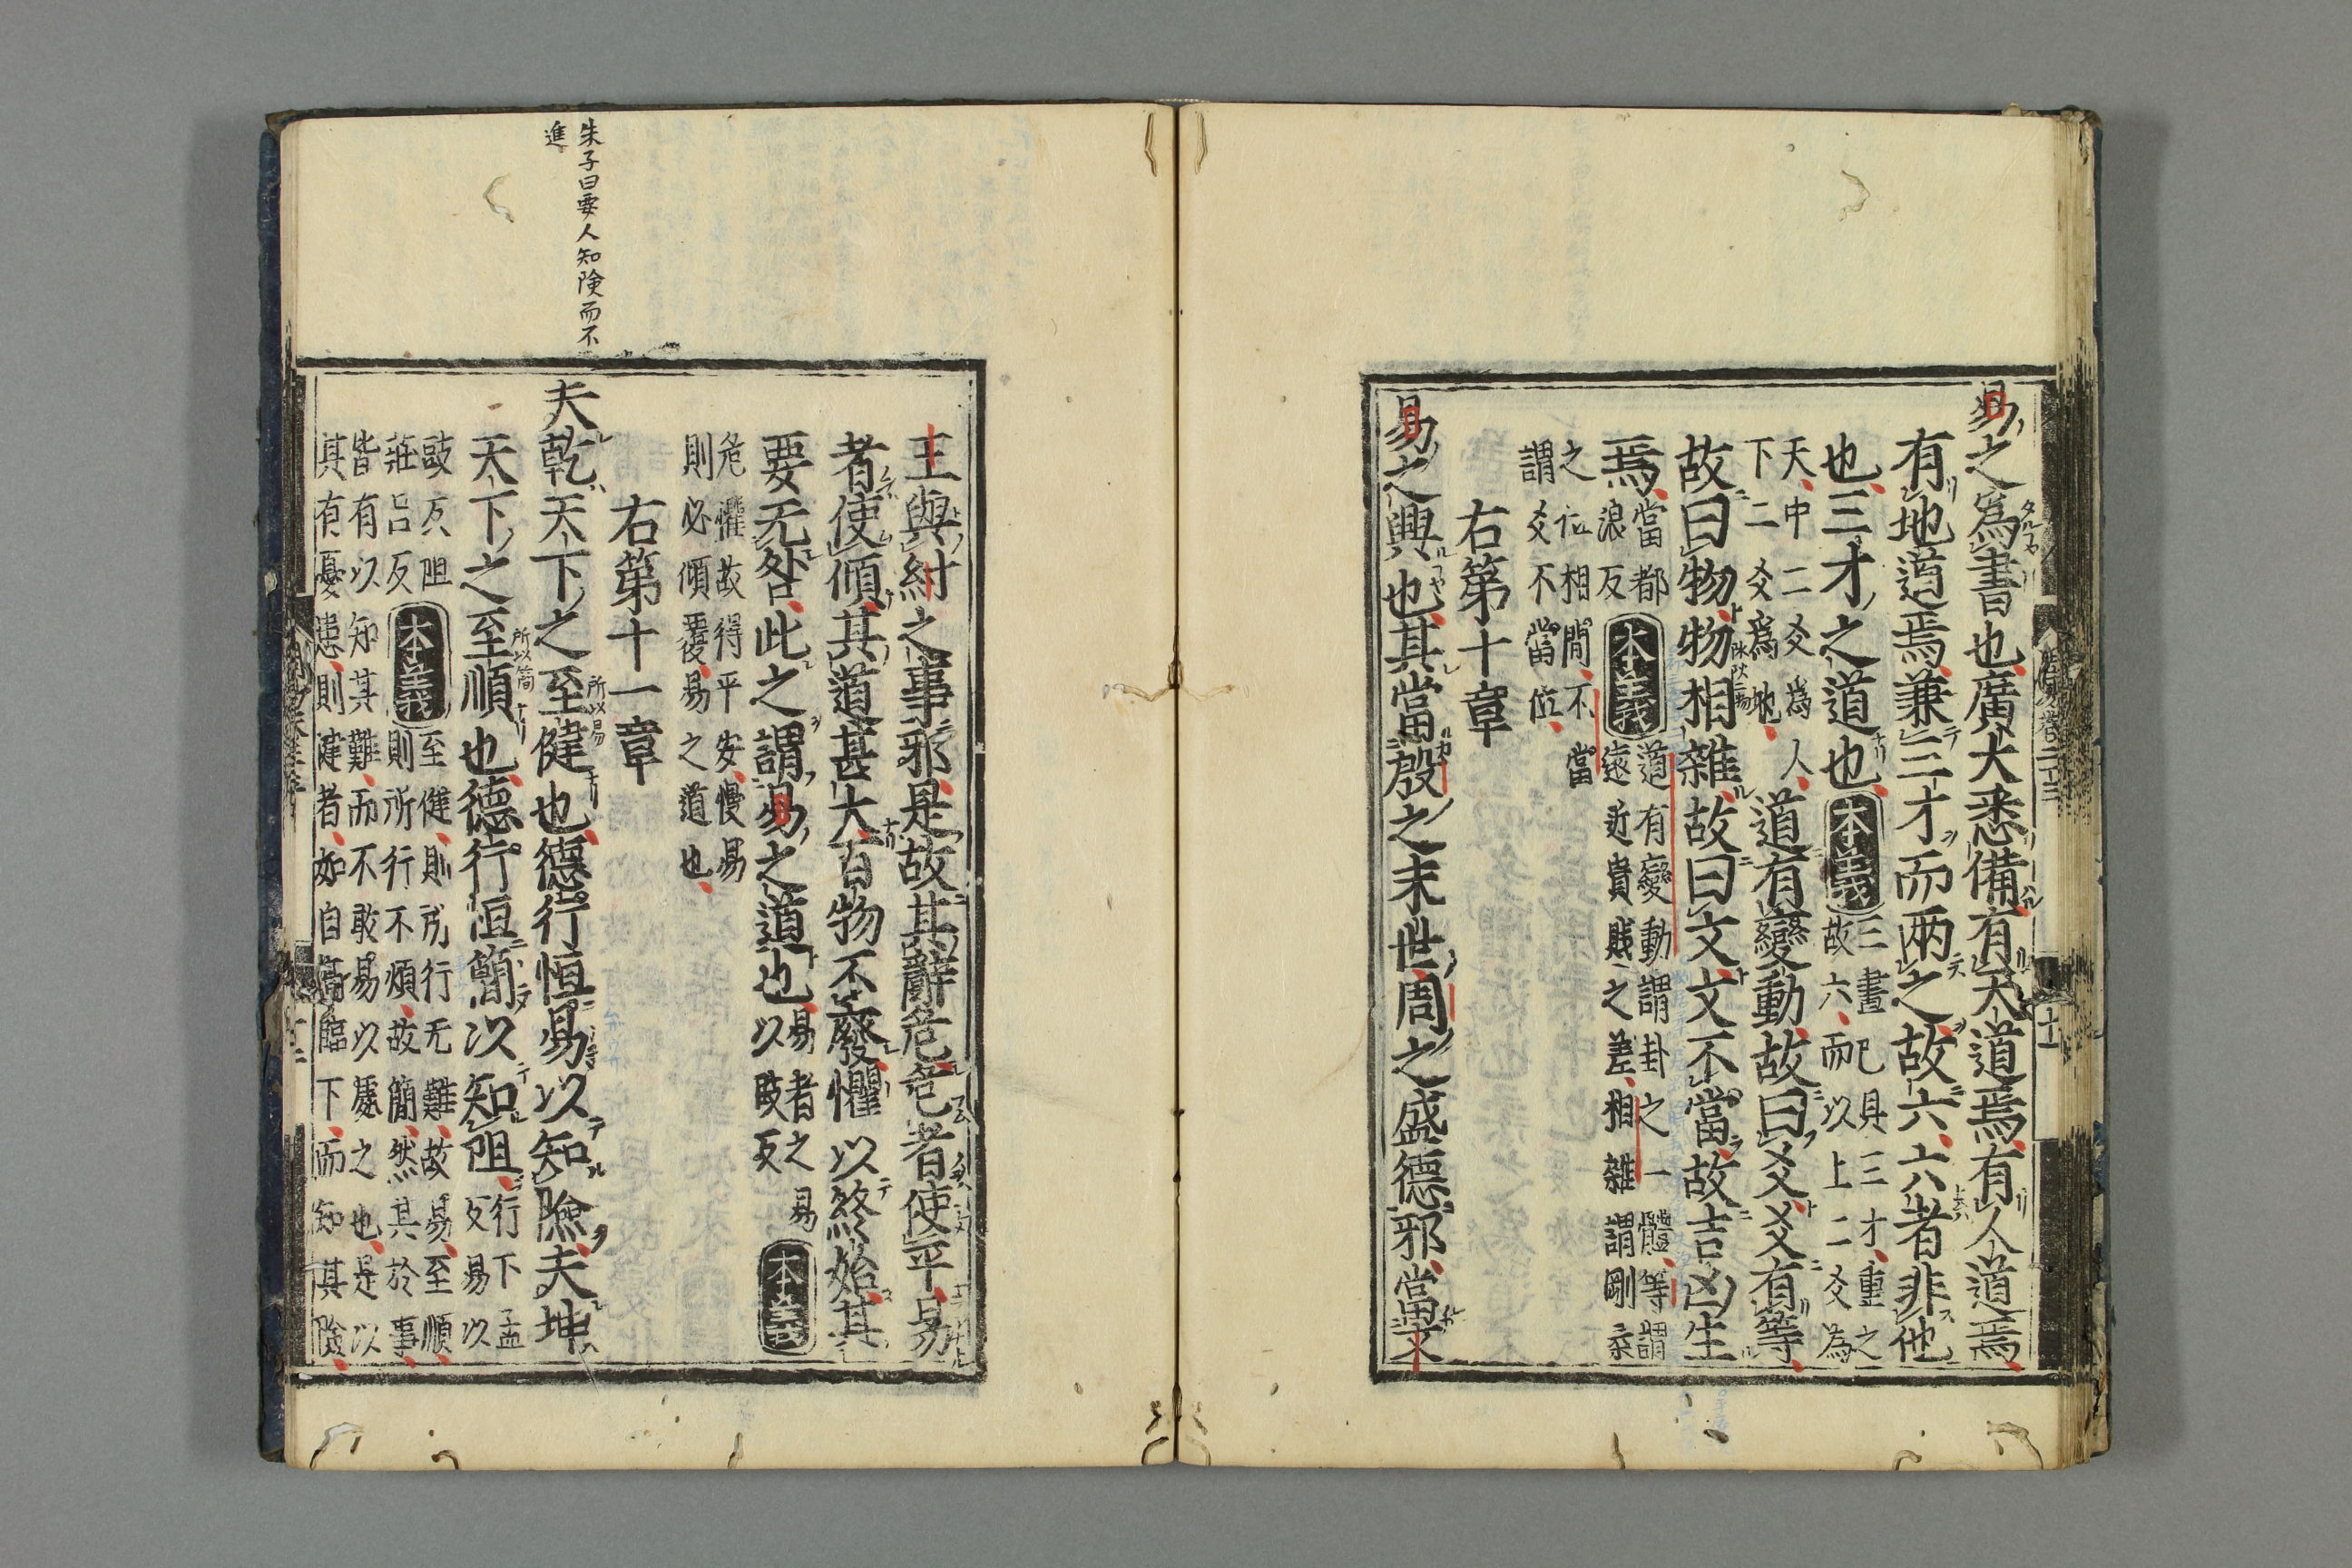 易之為書也廣大悉備有天道焉有人道焉
有地道焉兼三才而兩之故六六者非他
也三才之道也本義三畫已具三才重之
故六而以上二爻為
天中二爻為人
下二爻為地道有變動故曰爻爻有等
故曰物物相雜故曰文文不當故吉凶生
焉當都
浪反本義道有變動謂卦之一體等謂
遠近貴賤之差相雜謂剛柔
之位相間不當
謂爻不當位
右第十章
易之興也其當殷之末世周之盛德邪當文
王與紂之事邪是故其辭危危者使平易
者使傾其道甚大百物不廢懼以終始其
要无咎此之謂易之道也易者之易
以豉反本義
危懼故得平安慢易
則必傾覆易之道也
右第十一章
夫乾天下之至健也德行恒易以知險夫坤
天下之至順也德行恒簡以知阻行下孟
反易以
豉反阻
莊呂反本義至健則所行无難故易至順
則所行不煩故簡然其於事
皆有以知其難而不敢易以處之也是以
其有憂患則健者如自高臨下而知其險
朱子曰要人知険而不
進
所以易
所以簡